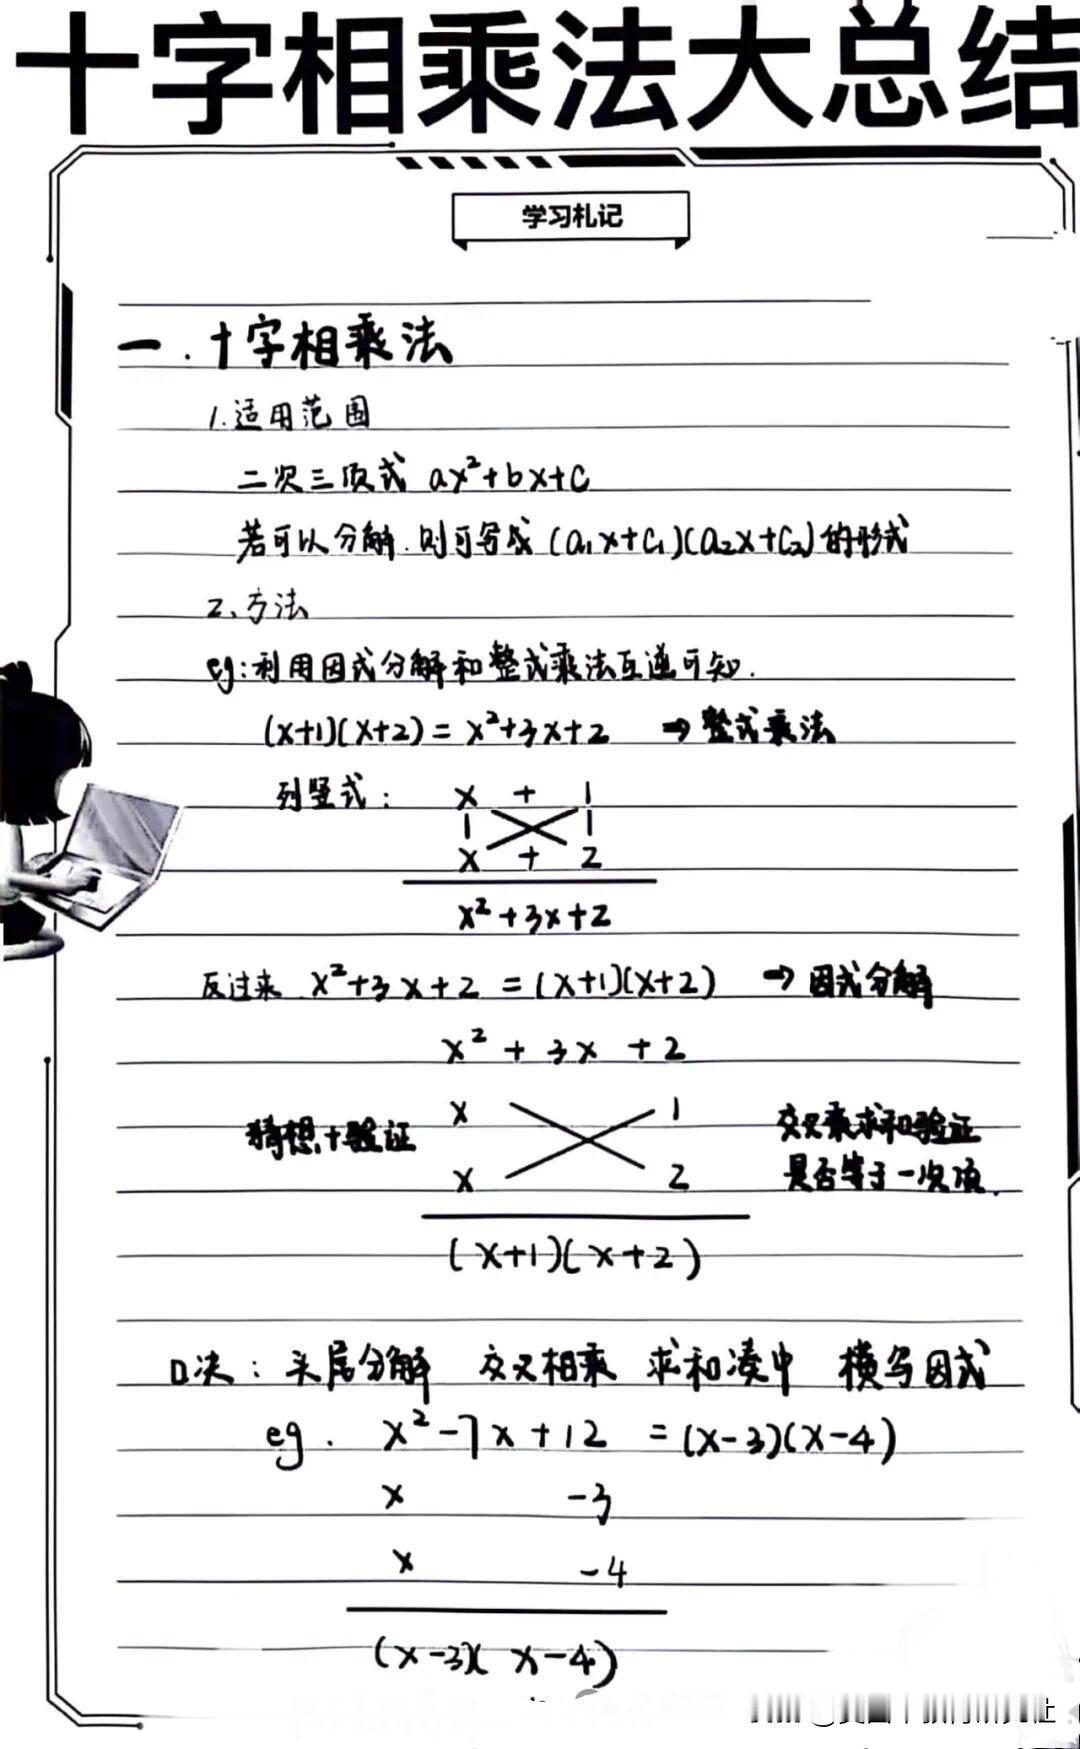 十字相乘法大总结
学习札记
一.十字相乘法
1.适用范围
二次三项式 ax²+bx+c
若可以分解.则可写成(a₁x+c₁)(a₂x+c₂)的形式
2、方法
eg:利用因式分解和整式乘法互逆可知.
(x+1)(x+2)=x²+3x+2 ⇒整式乘法
列竖式: x + 1
x + 2
x²+3x+2
反过来 x²+3x+2=(x+1)(x+2) ⇒因式分解
x²+3x+2
x 1
猜想+验证
交叉乘求和验证
是否等于一次项.
x 2
(x+1)(x+2)
口决:头尾分解 交叉相乘 求和凑中 横写因式
eg. x²-7x+12=(x-3)(x-4)
x -3
x -4
(x-3)(x-4)